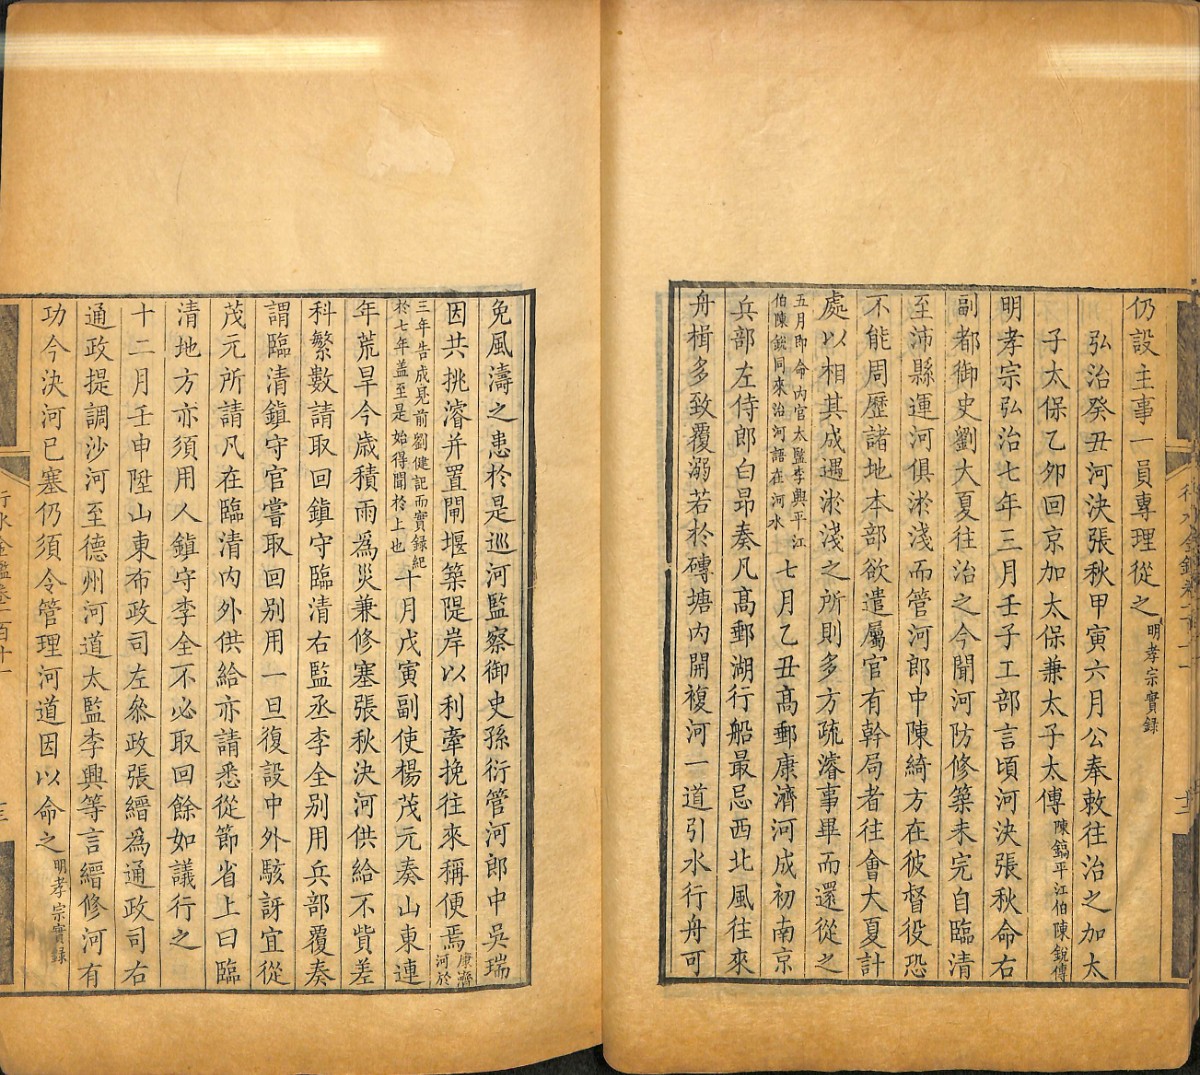 仍設主事一員專理從之明孝宗實錄
弘治癸丑河決張秋甲寅六月公奉敕往治之加太
子太保乙夘回京加太保兼太子太傅陳鎬平江伯陳銳傳
明孝宗弘治七年三月壬子工部言頃河決張秋命右
副都御史劉大夏往治之今聞河防修築未完自臨清
至沛縣運河俱淤淺而管河郎中陳綺方在彼督役恐
不能周歷諸地本部欲遣屬官有幹局者往會大夏計
處以相其成遇淤淺之所則多方疏濬事畢而還從之
五月即命內官太監李興平江
伯陳銳同來治河語在河水
七月乙丑高郵康濟河成初南京
兵部左侍郎白昻奏凡高郵湖行船最忌西北風往來
舟楫多致覆溺若於磚塘內開複河一道引水行舟可
行水金鑑卷一百十一
免風濤之患於是巡河監察御史孫衍管河郎中吳瑞
因共挑濬并置閘堰築隄岸以利牽挽往來稱便焉
康濟
河於
三年告成見前劉健記而實錄紀
於七年蓋至是始得聞於上也
十月戊寅副使楊茂元奏山東連
年荒旱今歲積雨為災兼修塞張秋決河供給不貲差
科繁數請取回鎮守臨清右監丞李全別用兵部覆奏
謂臨清鎮守官嘗取回別用一旦復設中外駭訝宜從
茂元所請凡在臨清內外供給亦請悉從節省上曰臨
清地方亦須用人鎮守李全不必取回餘如議行之
十二月壬申陞山東布政司左叅政張縉為通政司右
通政提調沙河至德州河道太監李興等言縉修河有
功今決河已塞仍須令管理河道因以命之明孝宗實錄
行水金鑑卷一百十一